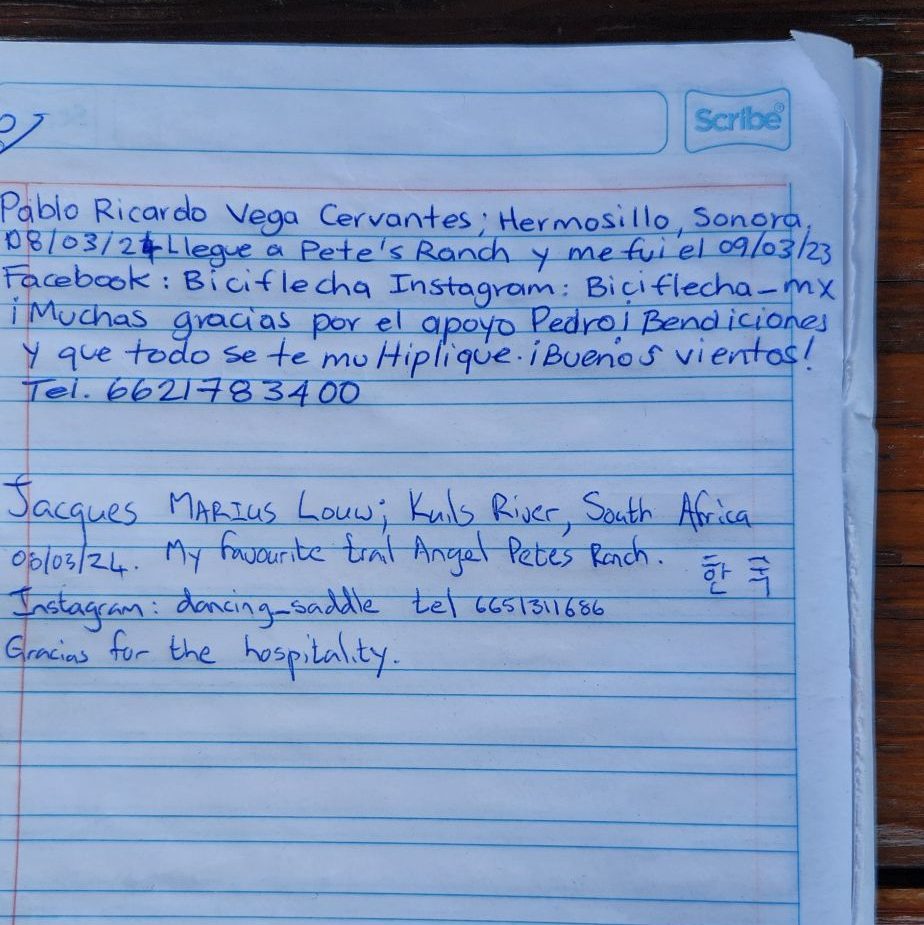 Scribe®
Pablo Ricardo Vega Cervantes; Hermosillo, Sonora,
08/03/24 Llegue a Pete's Ranch y me fui el 09/03/23
Facebook: Biciflecha Instagram: Biciflecha_mx
¡Muchas gracias por el apoyo Pedro¡ Bendiciones
y que todo se te multiplique. ¡Buenos vientos!
Tel. 6621783400
Jacques MARIUS Louw; Kuils River, South Africa
08/03/24. My favourite trail Angel Petes Ranch. 한국
Instagram: dancing_saddle tel 6651311686
Gracias for the hospitality.